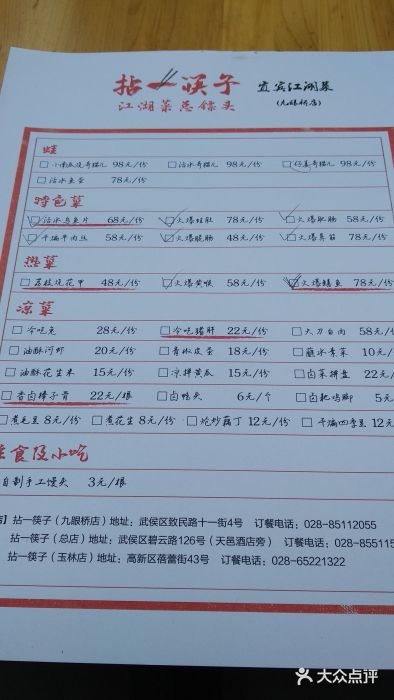 拈一筷子 宜宾江湖菜
江湖菜总馆头 (九眼桥店)
蛙
□小南瓜烧奇蹦儿 98元/份 □沾水奇蹦儿 98元/份 □仔姜奇蹦儿 98元/份
□沾水鱼蛋 78元/份
特色菜
□沾水乌鱼片 68元/份 □火爆蛙肚 78元/份 □火爆肥肠 58元/份
□干煸牛肉丝 58元/份 □火爆脆肠 48元/份 □火爆鼻筋 78元/份
热菜
□荔枝烧花甲 48元/份 □火爆黄喉 58元/份 □火爆鳝鱼 78元/份
凉菜
□冷吃兔 28元/份 □冷吃猪肝 22元/份 □大刀白肉 58元/
□油酥河虾 20元/份 □青椒皮蛋 18元/份 □蘸水素菜 10元/
□油酥花生米 15元/份 □凉拌黄瓜 15元/份 □卤菜拼盘 22元/
□香卤棒子骨 22元/根 □卤鸭头 6元/个 □卤耙鸡脚 5元
□煮毛豆 8元/份 □煮花生 8元/份 □炝炒藕丁 12元/份 □干煸四季豆 12元/
主食及小吃
自制手工馒头 3元/根
店】拈一筷子（九眼桥店）地址：武侯区致民路十一街4号 订餐电话：028-85112055
拈一筷子（总店）地址：武侯区碧云路126号（天邑酒店旁） 订餐电话：028-855115
拈一筷子（玉林店）地址：高新区蓓蕾街43号 订餐电话：028-65221322
大众点评